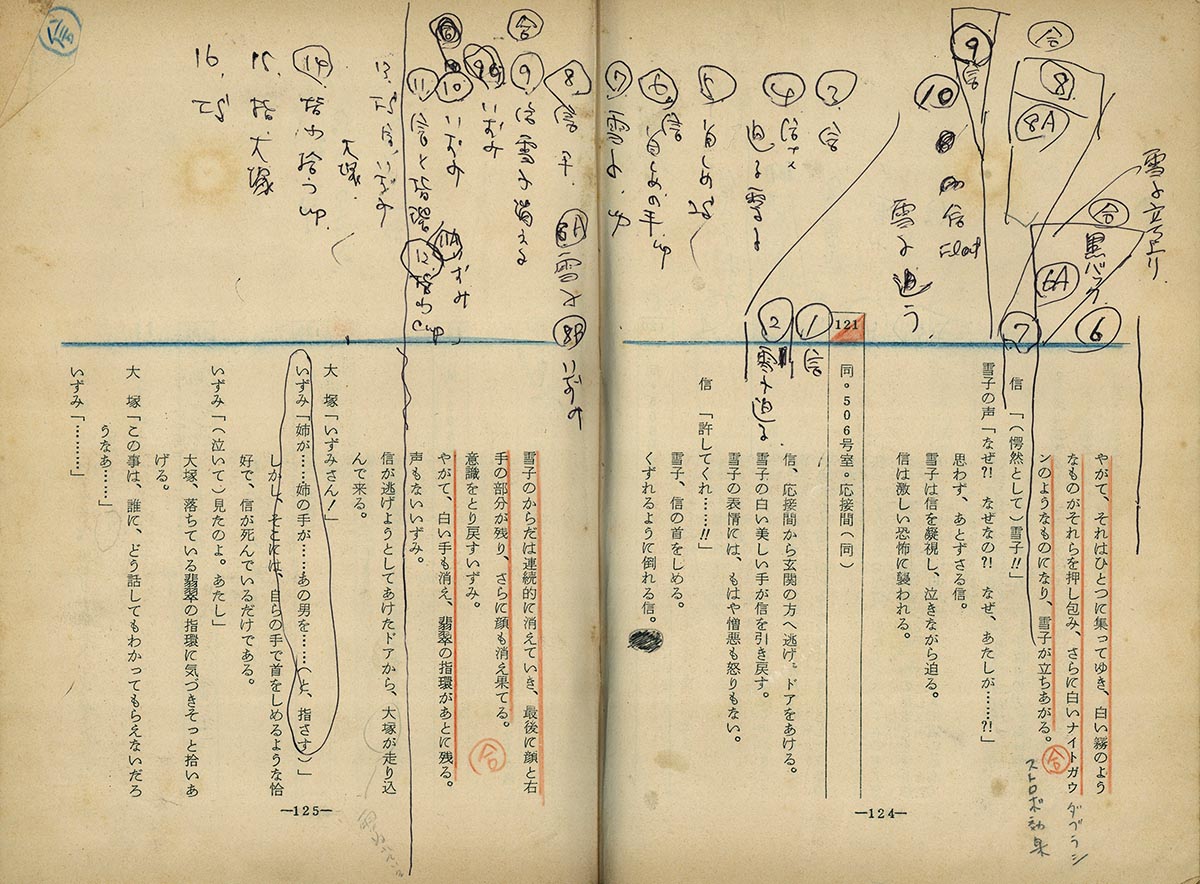 雪子立ち上り
合
8
8A
9
信
10
信
雪子追う
合
黒バック
6A
6
7
3
信
4
迫る雪子
5
6
信
7
雪子 up
8
信
8A
雪子
8B
いずみ
合
9
信
雪子消える
いずみ
10
いずみ
11
信と
11A
いずみ
12
大塚
14
拾う up
15
大塚
16
1
信
2
雪子迫る
やがて、それはひとつに集ってゆき、白い霧のよう
なものがそれらを押し包み、さらに白いナイトガウ
ンのようなものになり、雪子が立ちあがる。
合
ダブラシ
ストロボ効果
信 「(愕然として)雪子!!」
思わず、あとずさる信。
雪子の声「なぜ?! なぜなの?! なぜ、あたしが……?!」
雪子は信を凝視し、泣きながら迫る。
信は激しい恐怖に襲われる。
121
同。506号室。応接間(同)
信、応接間から玄関の方へ逃げ、ドアをあける。
雪子の白い美しい手が信を引き戻す。
雪子の表情には、もはや憎悪も怒りもない。
信 「許してくれ……!!」
雪子、信の首をしめる。
くずれるように倒れる信。
—124—
雪子のからだは連続的に消えていき、最後に顔と右
手の部分が残り、さらに顔も消え果てる。
合
意識をとり戻すいずみ。
やがて、白い手も消え、翡翠の指環があとに残る。
声もないいずみ。
信が逃げようとしてあけたドアから、大塚が走り込
んで来る。
大 塚「いずみさん!」
いずみ「姉が……姉の手が……あの男を……(と、指さす)」
しかし、そこには、自らの手で首をしめるような恰
好で、信が死んでいるだけである。
いずみ「(泣いて)見たのよ。あたし」
大塚、落ちている翡翠の指環に気づきそっと拾いあ
げる。
大 塚「この事は、誰に、どう話してもわかってもらえないだろ
うなあ……」
いずみ「…………」
—125—